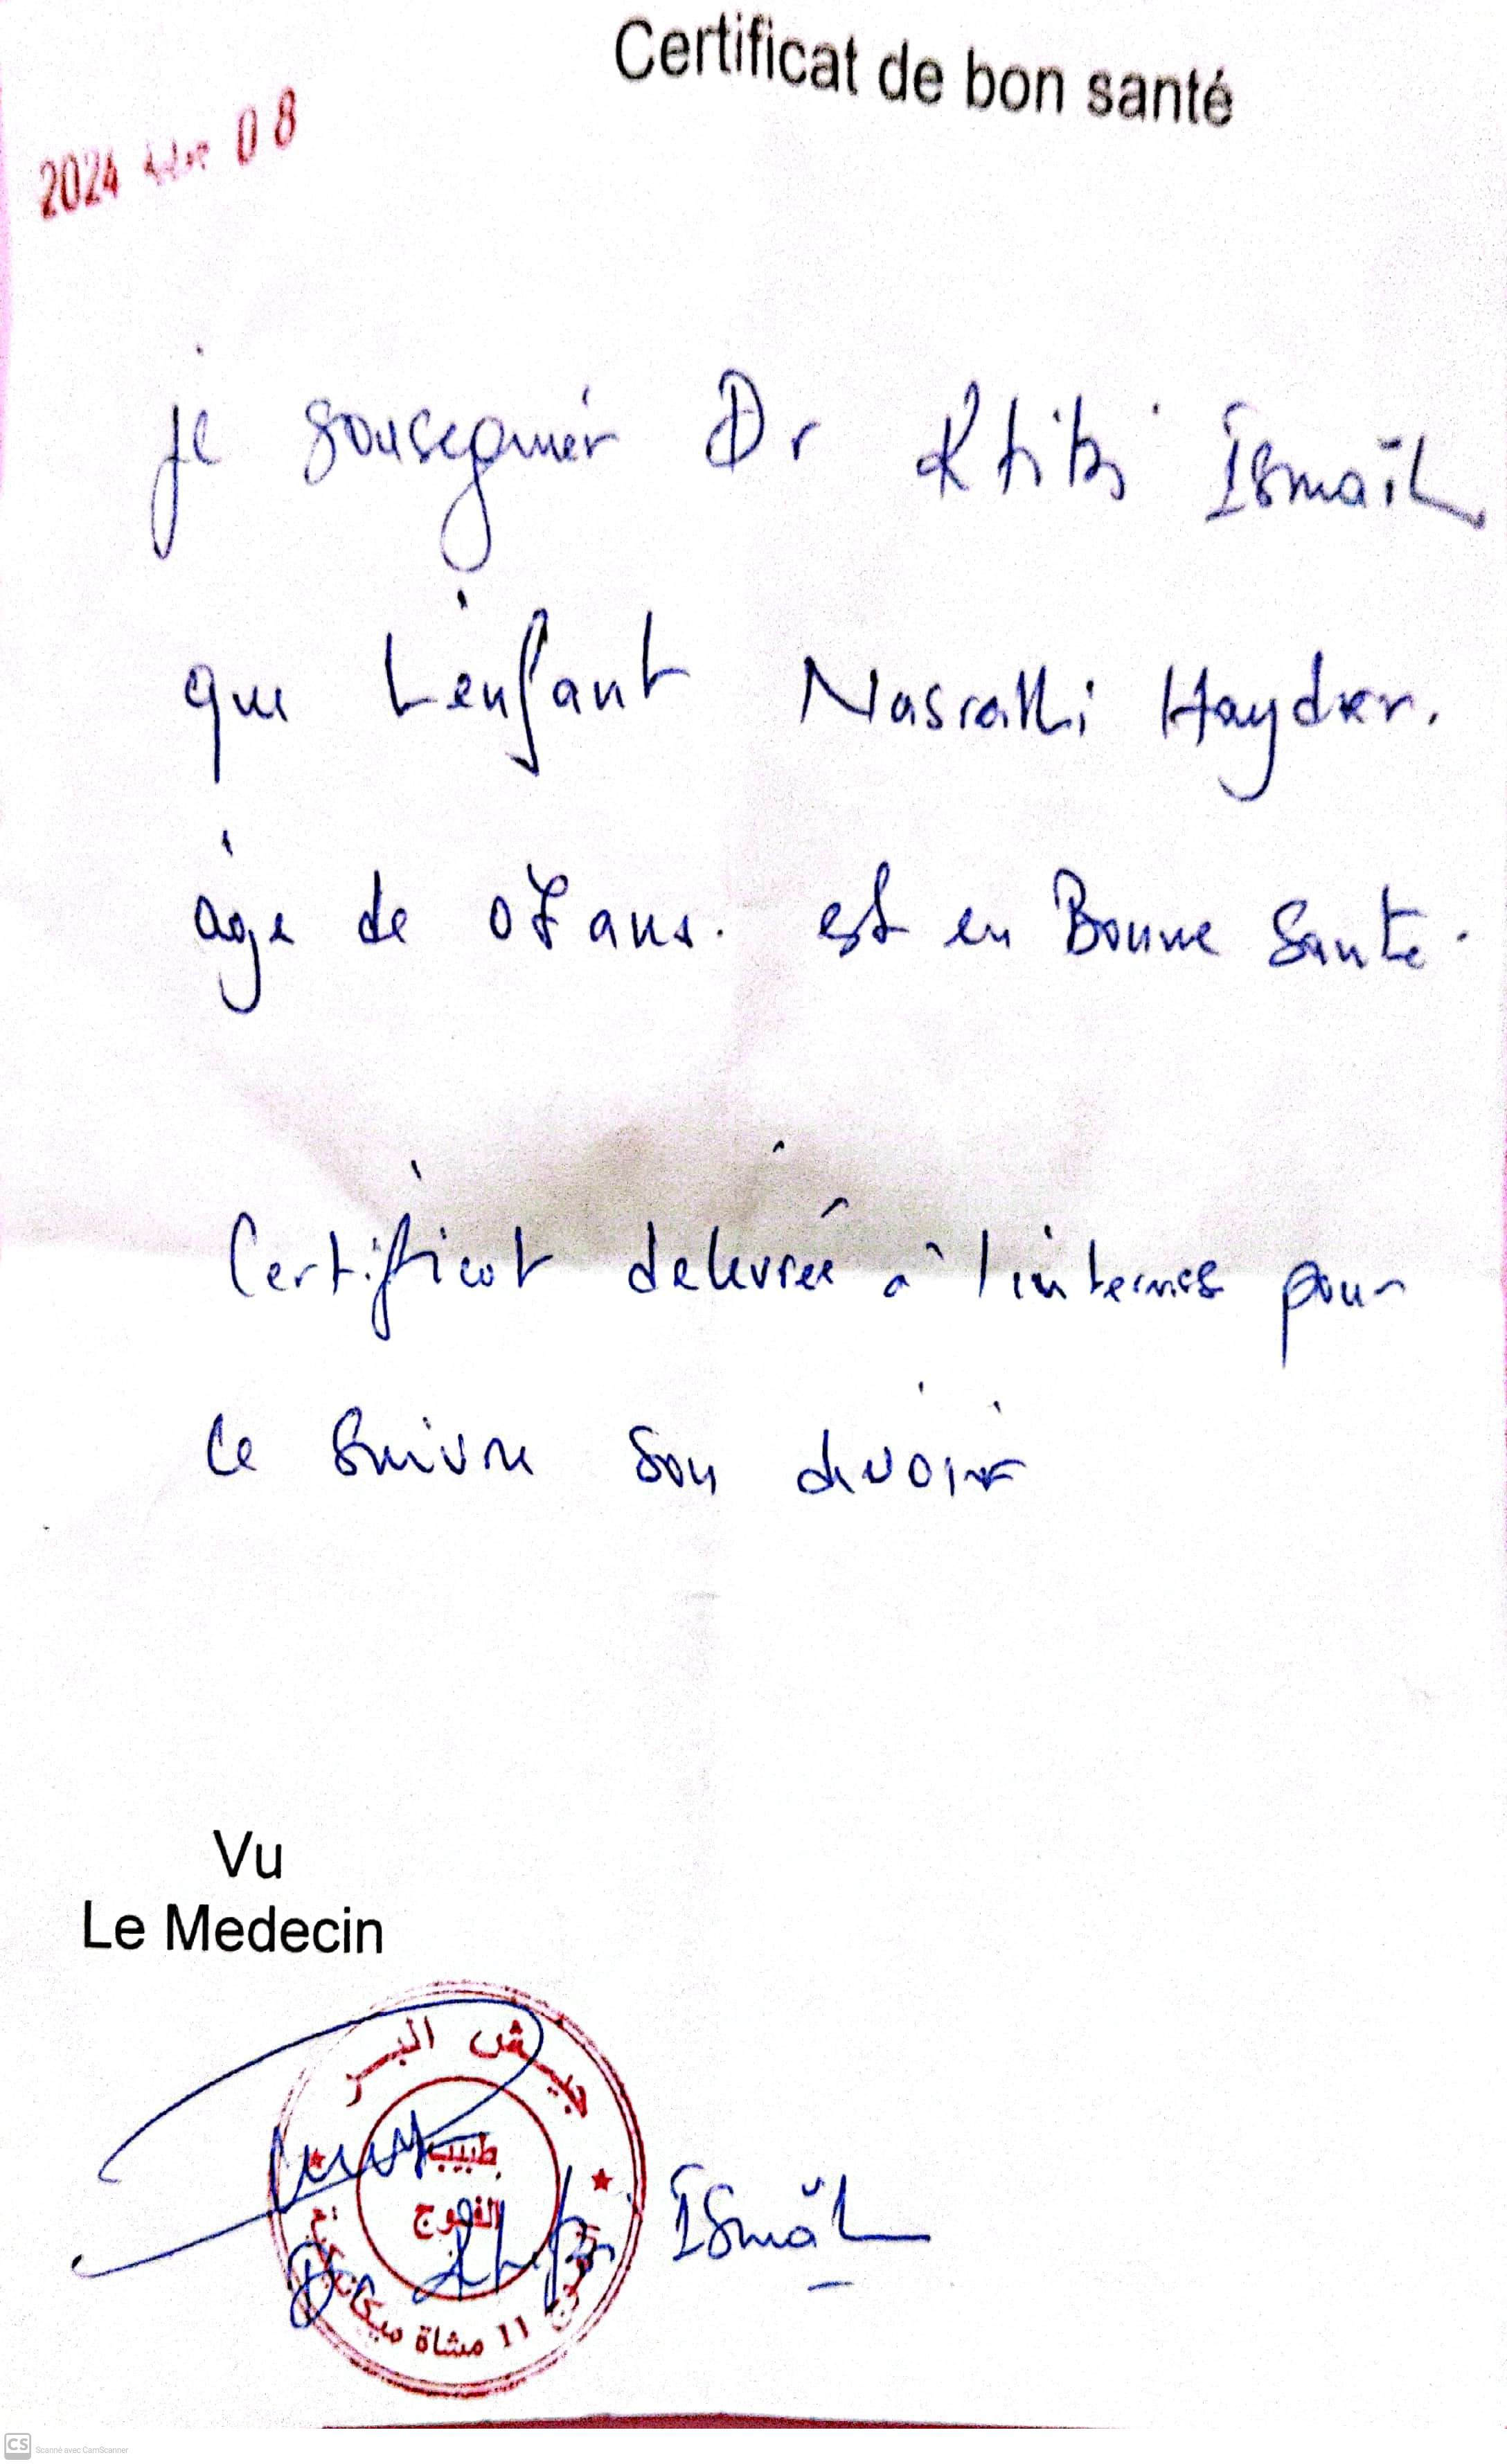 Certificat de bon santé
2024 08
je sousegnér Dr Ktibi Ismaïl
que L'enfant Nasralli Hayder.
àge de 07 ans. est en Bonne Sante.
Certificat delevrée à l'interres pour
le Suivre son devoir
Vu
Le Medecin
جيش البر
طبيب
الفوج
الفوج 11 مشاة ميكانيكية
Dr Ktibi Ismaïl
CS Scanné avec CamScanner